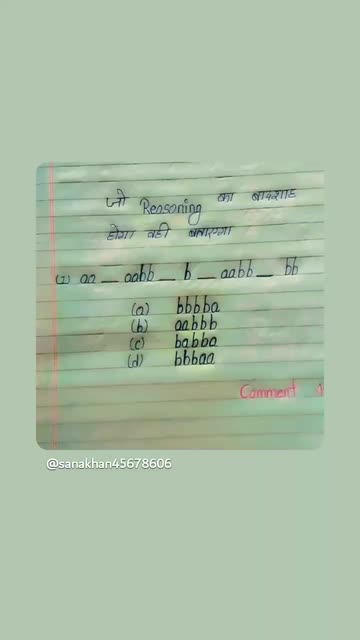 जो Reasoning का बादशाह
होगा वही बताएगा
(1) aa _ aabb _ b _ aabb _ bb
(a) bbbba
(b) aabbb
(c) babba
(d) bbbaa
Comment
@sanakhan45678606